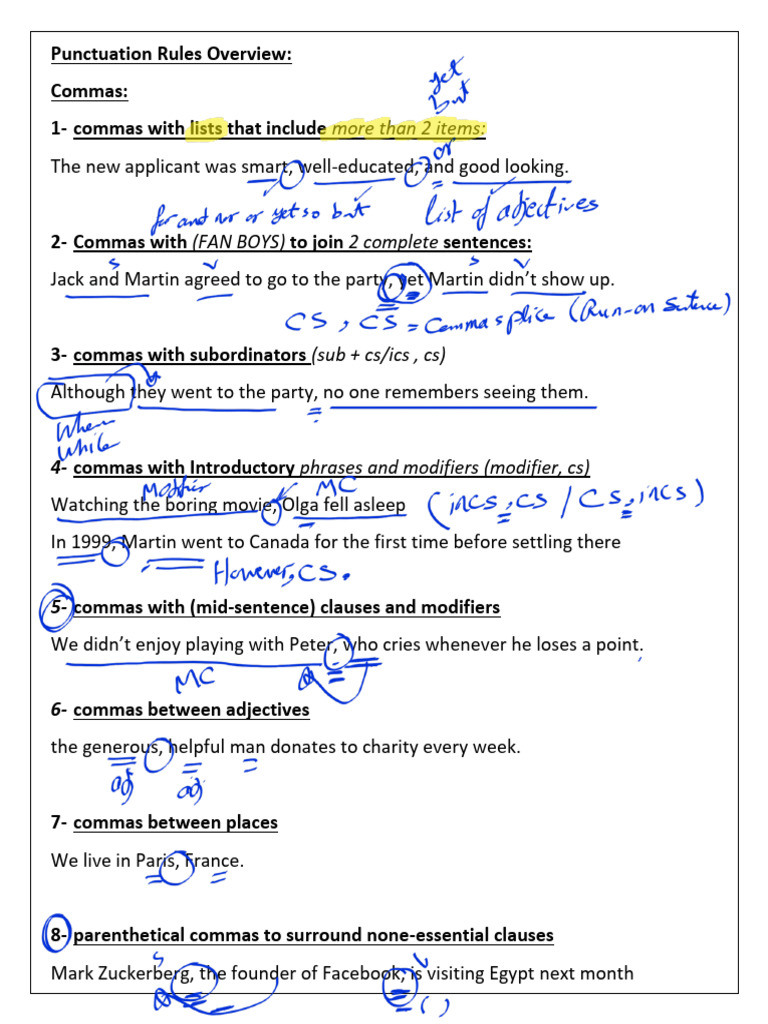 Punctuation Rules Overview:
yet
Commas:
but
1- commas with lists that include more than 2 items:
or
The new applicant was smart, well-educated, and good looking.
for and nor or yet so but
list of adjectives
2- Commas with (FAN BOYS) to join 2 complete sentences:
S V S V
Jack and Martin agreed to go to the party, yet Martin didn't show up.
CS , CS = Comma splice (Run-on Sentence)
3- commas with subordinators (sub + cs/ics , cs)
Although they went to the party, no one remembers seeing them.
When
While
4- commas with Introductory phrases and modifiers (modifier, cs)
Modifier MC
Watching the boring movie, Olga fell asleep
(incs, CS / CS, incs)
In 1999, Martin went to Canada for the first time before settling there
However, CS.
5- commas with (mid-sentence) clauses and modifiers
We didn't enjoy playing with Peter, who cries whenever he loses a point.
MC
6- commas between adjectives
the generous, helpful man donates to charity every week.
adj adj
7- commas between places
We live in Paris, France.
8- parenthetical commas to surround none-essential clauses
S V
Mark Zuckerberg, the founder of Facebook, is visiting Egypt next month
( )